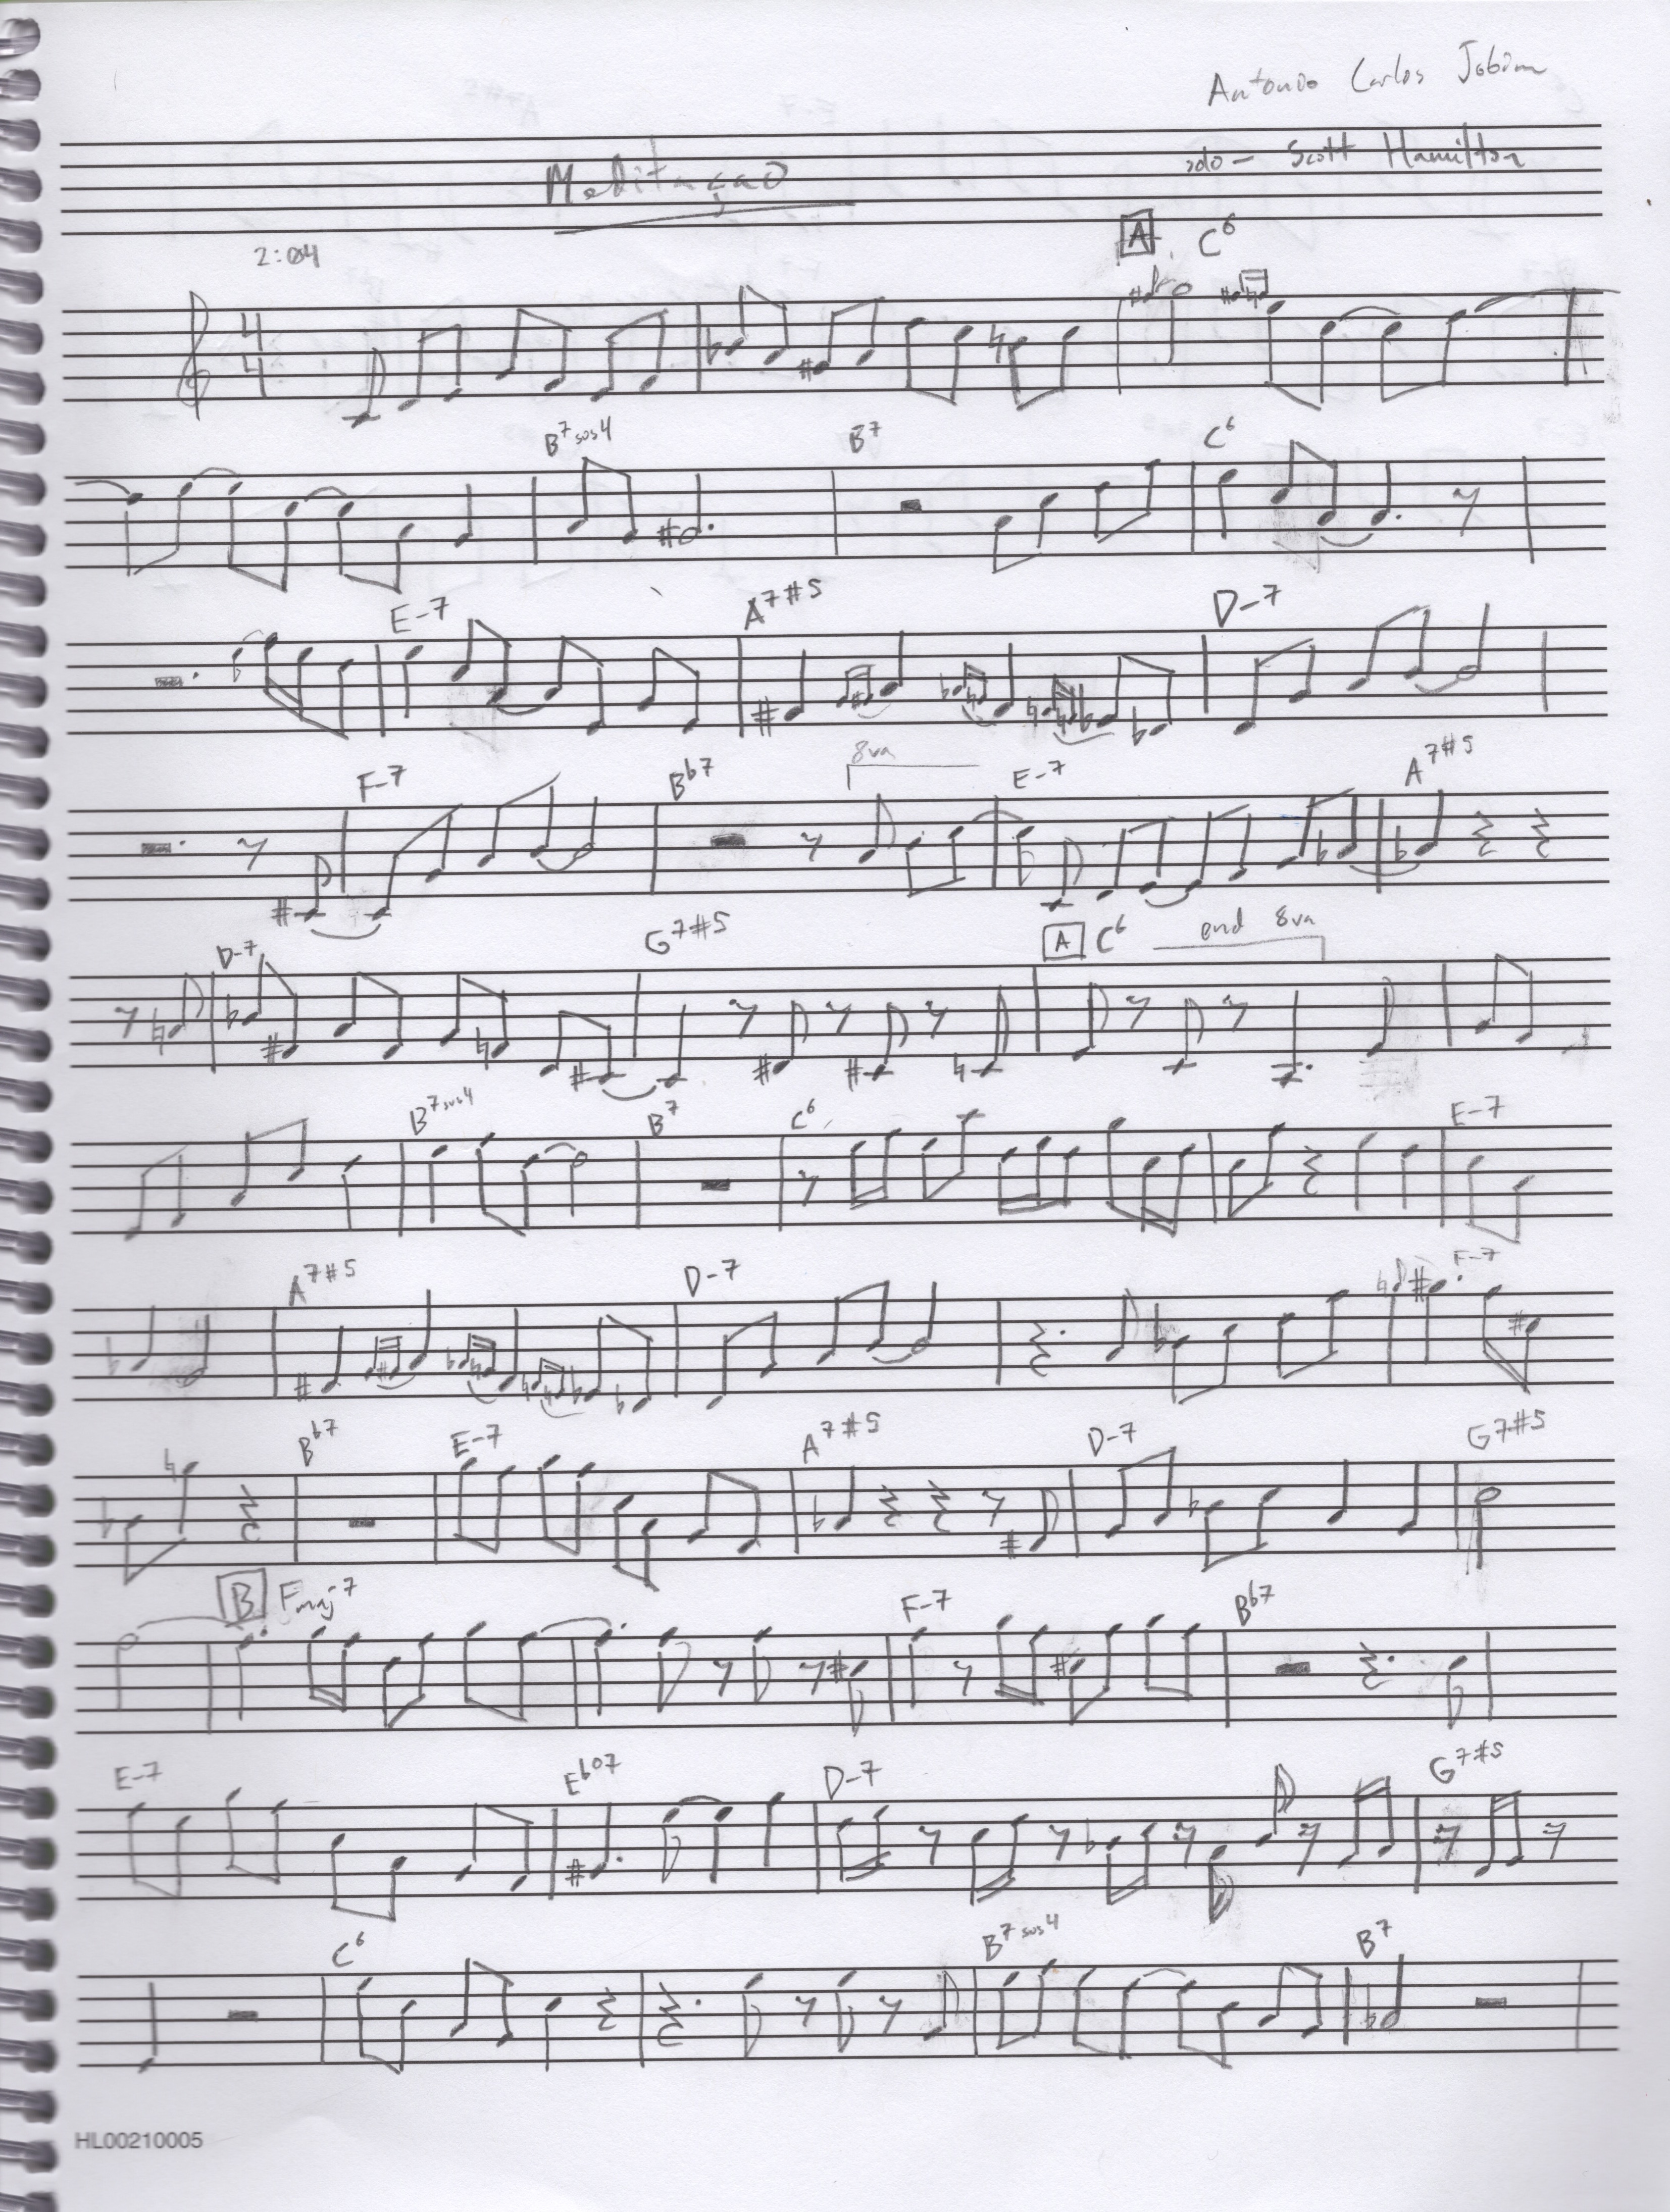 Antonio Carlos Jobim
Meditaçao
solo - Scott Hamilton
2:04
A C6
4
4
B7sus4 B7 C6
E-7 A7#5 D-7
8va
F-7 Bb7 E-7 A7#5
D-7 G7#5 A C6 end 8va
B7sus4 B7 C6 E-7
A7#5 D-7 F-7
Bb7 E-7 A7#5 D-7 G7#5
B Fmaj7 F-7 Bb7
E-7 Ebo7 D-7 G7#5
C6 B7sus4 B7
HL00210005